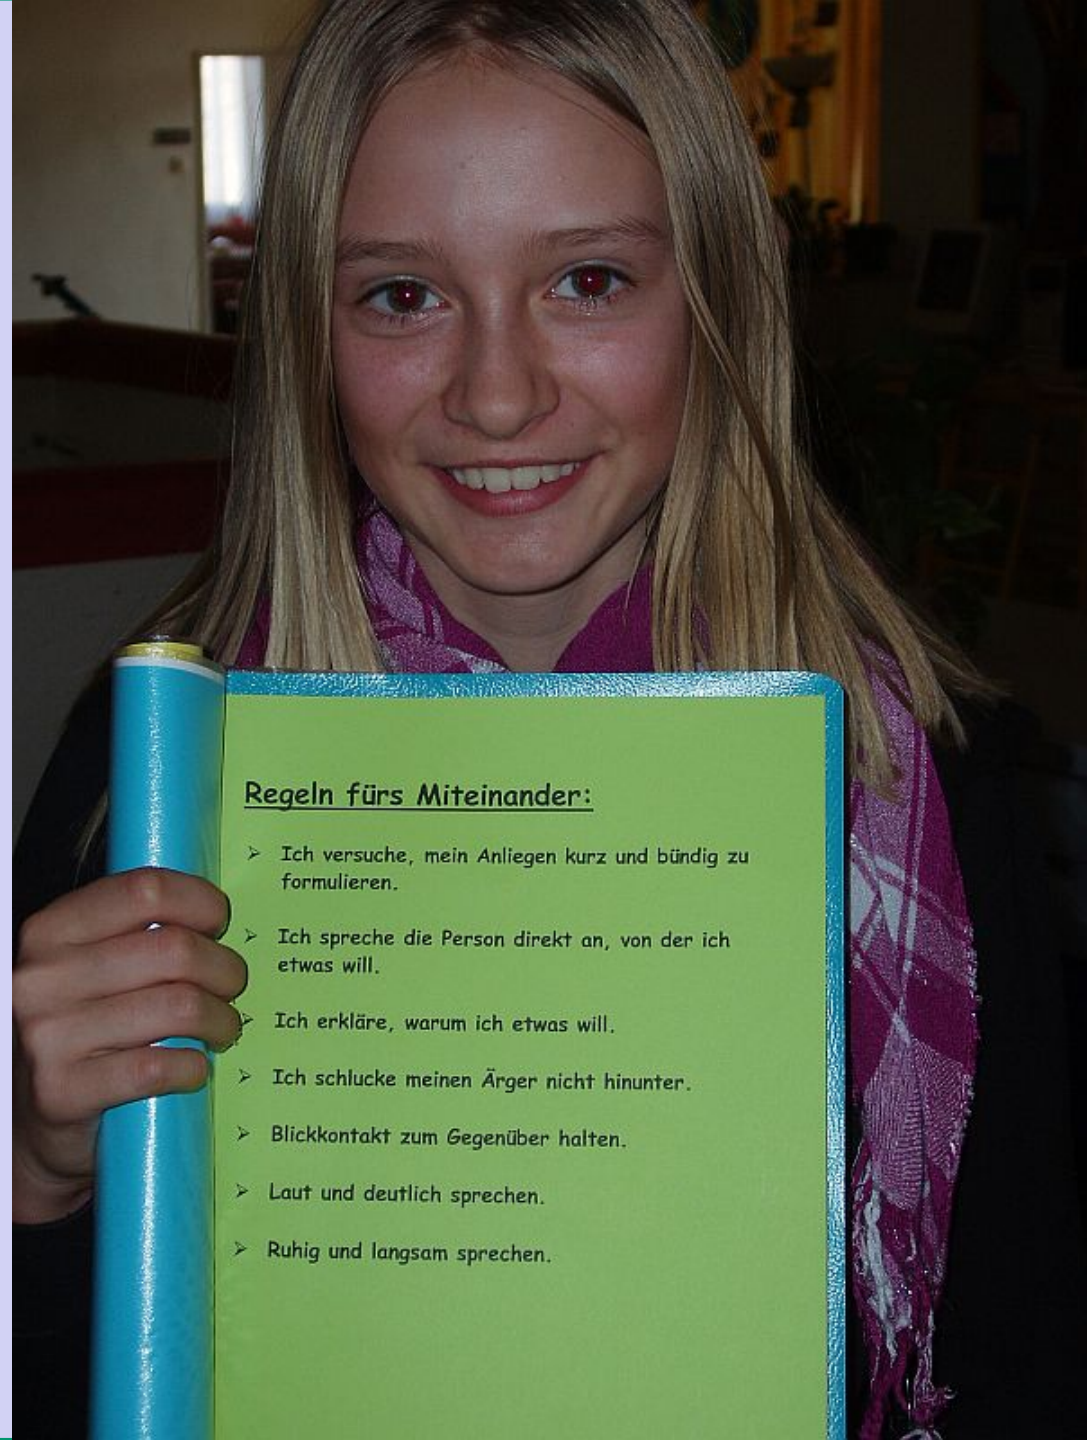 Regeln fürs Miteinander:
➢ Ich versuche, mein Anliegen kurz und bündig zu
formulieren.
➢ Ich spreche die Person direkt an, von der ich
etwas will.
➢ Ich erkläre, warum ich etwas will.
➢ Ich schlucke meinen Ärger nicht hinunter.
➢ Blickkontakt zum Gegenüber halten.
➢ Laut und deutlich sprechen.
➢ Ruhig und langsam sprechen.